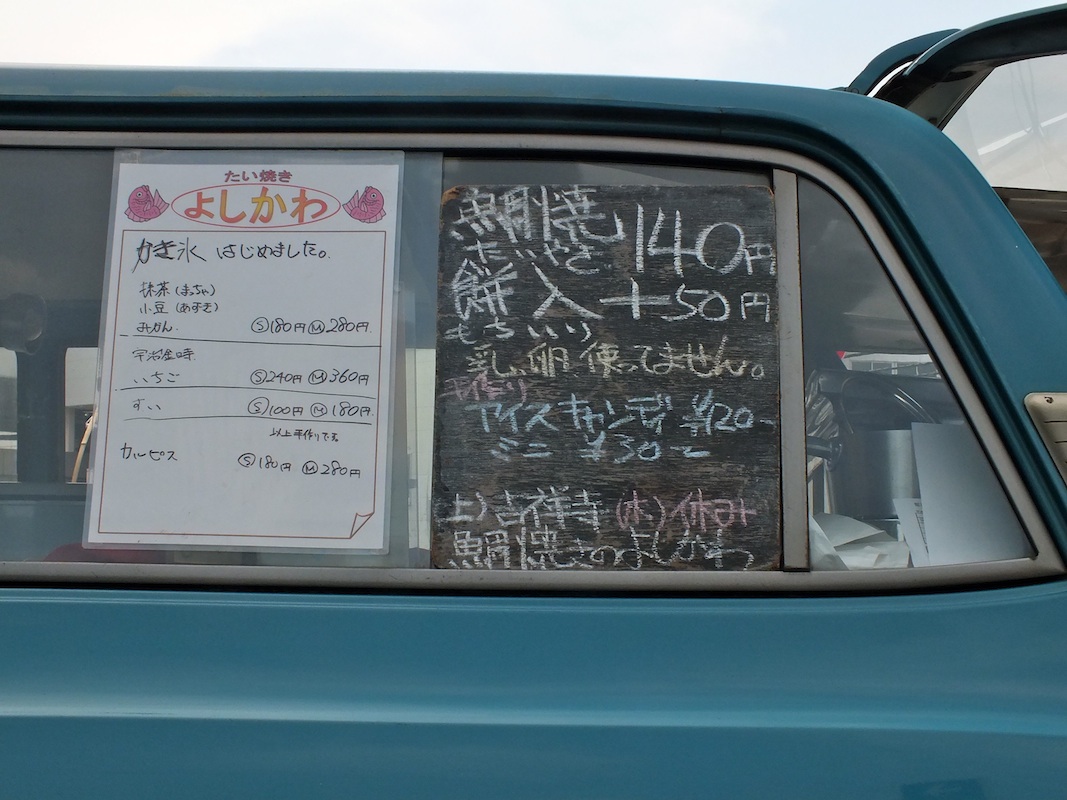 たい焼き
よしかわ
かき氷 はじめました。
抹茶(まっちゃ)
小豆(あずき)
みかん. Ⓢ180円 Ⓜ280円.
宇治金時
いちご Ⓢ240円 Ⓜ360円
すい Ⓢ100円 Ⓜ180円.
以上手作りです
カルピス Ⓢ180円 Ⓜ280円
鯛焼 140円
たいやき
餅入 +50円
もちいり
乳、卵使ってません。
手作り
アイスキャンディ ¥120-
ミニ ¥30-
上ノ吉祥寺 (木)休み
鯛焼きのよしかわ